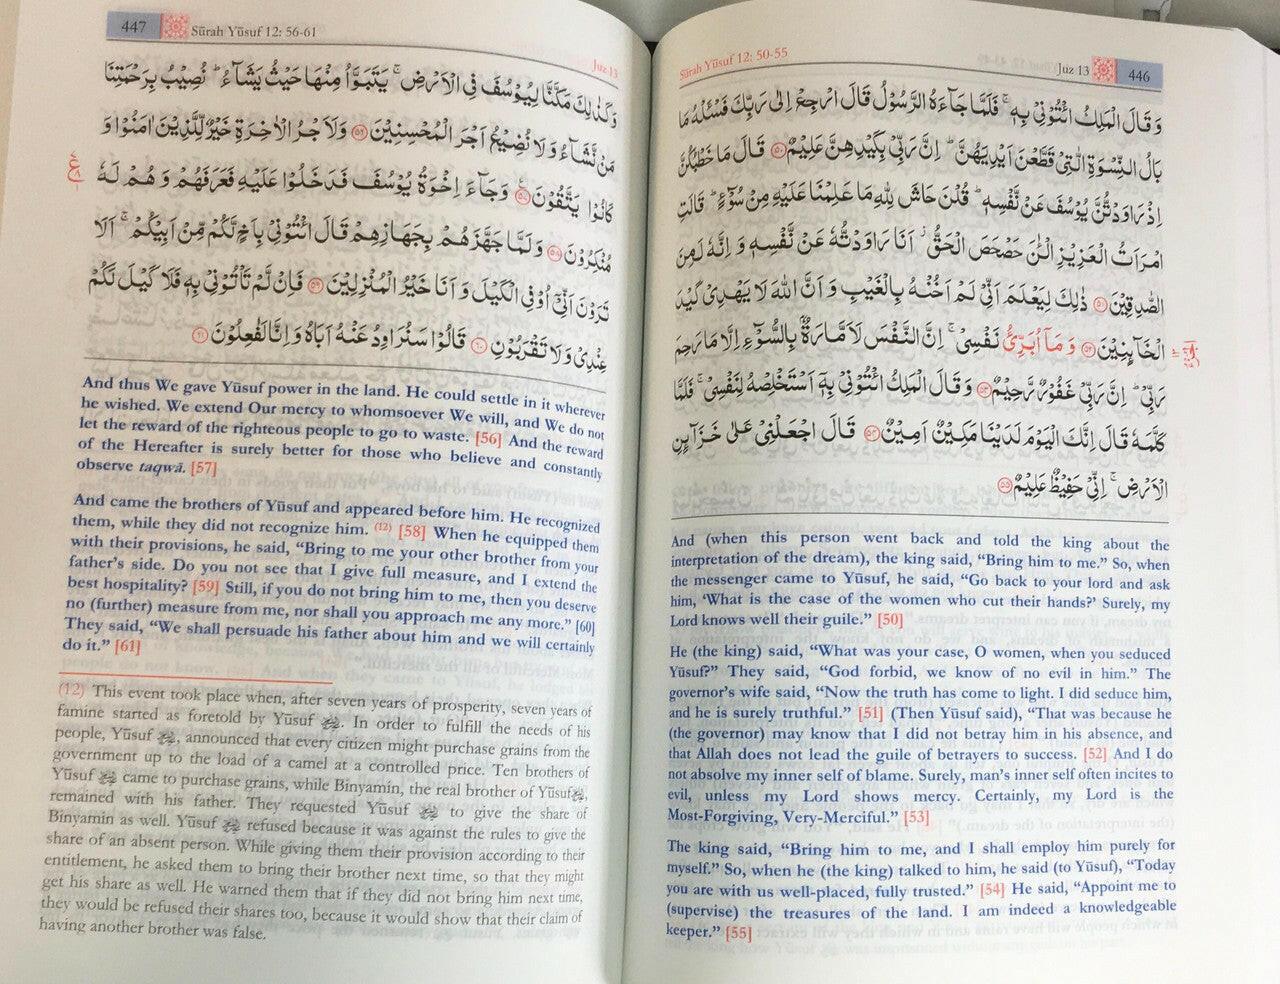 Sūrah Yūsuf 12: 50-55
Juz 13
446
وَقَالَ الْمَلِكُ ائْتُوْنِيْ بِهٖ ۚ فَلَمَّا جَآءَهُ الرَّسُوْلُ قَالَ ارْجِعْ اِلٰى رَبِّكَ فَسْئَلْهُ مَا
بَالُ النِّسْوَةِ الّٰتِيْ قَطَّعْنَ اَيْدِيَهُنَّ ؕ اِنَّ رَبِّيْ بِكَيْدِهِنَّ عَلِيْمٌ ۝۵۰ قَالَ مَا خَطْبُكُنَّ
اِذْ رَاوَدْتُّنَّ يُوْسُفَ عَنْ نَّفْسِهٖ ؕ قُلْنَ حَاشَ لِلّٰهِ مَا عَلِمْنَا عَلَيْهِ مِنْ سُوْٓءٍ ؕ قَالَتِ
امْرَاَتُ الْعَزِيْزِ الْـٰٔنَ حَصْحَصَ الْحَقُّ ۫ اَنَا رَاوَدْتُّهٗ عَنْ نَّفْسِهٖ وَ اِنَّهٗ لَمِنَ
الصّٰدِقِيْنَ ۝۵۱ ذٰلِكَ لِيَعْلَمَ اَنِّيْ لَمْ اَخُنْهُ بِالْغَيْبِ وَ اَنَّ اللّٰهَ لَا يَهْدِيْ كَيْدَ
الْخَآئِنِيْنَ ۝۵۲ وَ مَاۤ اُبَرِّئُ نَفْسِيْ ۚ اِنَّ النَّفْسَ لَاَمَّارَةٌۢ بِالسُّوْٓءِ اِلَّا مَا رَحِمَ
رَبِّيْ ؕ اِنَّ رَبِّيْ غَفُوْرٌ رَّحِيْمٌ ۝۵۳ وَ قَالَ الْمَلِكُ ائْتُوْنِيْ بِهٖۤ اَسْتَخْلِصْهُ لِنَفْسِيْ ۚ فَلَمَّا
كَلَّمَهٗ قَالَ اِنَّكَ الْيَوْمَ لَدَيْنَا مَكِيْنٌ اَمِيْنٌ ۝۵۴ قَالَ اجْعَلْنِيْ عَلٰى خَزَآئِنِ
الْاَرْضِ ۚ اِنِّيْ حَفِيْظٌ عَلِيْمٌ ۝۵۵
And (when this person went back and told the king about the
interpretation of the dream), the king said, “Bring him to me.” So, when
the messenger came to Yūsuf, he said, “Go back to your lord and ask
him, ‘What is the case of the women who cut their hands?’ Surely, my
Lord knows well their guile.” [50]
He (the king) said, “What was your case, O women, when you seduced
Yūsuf?” They said, “God forbid, we know of no evil in him.” The
governor’s wife said, “Now the truth has come to light. I did seduce him,
and he is surely truthful.” [51] (Then Yūsuf said), “That was because he
(the governor) may know that I did not betray him in his absence, and
that Allah does not lead the guile of betrayers to success. [52] And I do
not absolve my inner self of blame. Surely, man’s inner self often incites to
evil, unless my Lord shows mercy. Certainly, my Lord is the
Most-Forgiving, Very-Merciful.” [53]
The king said, “Bring him to me, and I shall employ him purely for
myself.” So, when he (the king) talked to him, he said (to Yūsuf), “Today
you are with us well-placed, fully trusted.” [54] He said, “Appoint me to
(supervise) the treasures of the land. I am indeed a knowledgeable
keeper.” [55]
447
Sūrah Yūsuf 12: 56-61
Juz 13
وَكَذٰلِكَ مَكَّنَّا لِيُوْسُفَ فِي الْاَرْضِ ۚ يَتَبَوَّاُ مِنْهَا حَيْثُ يَشَآءُ ؕ نُصِيْبُ بِرَحْمَتِنَا
مَنْ نَّشَآءُ وَ لَا نُضِيْعُ اَجْرَ الْمُحْسِنِيْنَ ۝۵۶ وَ لَاَجْرُ الْاٰخِرَةِ خَيْرٌ لِّلَّذِيْنَ اٰمَنُوْا وَ
كَانُوْا يَتَّقُوْنَ ۝۵۷ وَ جَآءَ اِخْوَةُ يُوْسُفَ فَدَخَلُوْا عَلَيْهِ فَعَرَفَهُمْ وَ هُمْ لَهٗ
مُنْكِرُوْنَ ۝۵۸ وَ لَمَّا جَهَّزَهُمْ بِجَهَازِهِمْ قَالَ ائْتُوْنِيْ بِاَخٍ لَّكُمْ مِّنْ اَبِيْكُمْ ۚ اَلَا
تَرَوْنَ اَنِّيْۤ اُوْفِي الْكَيْلَ وَ اَنَا خَيْرُ الْمُنْزِلِيْنَ ۝۵۹ فَاِنْ لَّمْ تَاْتُوْنِيْ بِهٖ فَلَا كَيْلَ لَكُمْ
عِنْدِيْ وَ لَا تَقْرَبُوْنِ ۝۶۰ قَالُوْا سَنُرَاوِدُ عَنْهُ اَبَاهُ وَ اِنَّا لَفٰعِلُوْنَ ۝۶۱
And thus We gave Yūsuf power in the land. He could settle in it wherever
he wished. We extend Our mercy to whomsoever We will, and We do not
let the reward of the righteous people to go to waste. [56] And the reward
of the Hereafter is surely better for those who believe and constantly
observe taqwā. [57]
And came the brothers of Yūsuf and appeared before him. He recognized
them, while they did not recognize him. (12) [58] When he equipped them
with their provisions, he said, “Bring to me your other brother from your
father’s side. Do you not see that I give full measure, and I extend the
best hospitality? [59] Still, if you do not bring him to me, then you deserve
no (further) measure from me, nor shall you approach me any more.” [60]
They said, “We shall persuade his father about him and we will certainly
do it.” [61]
(12) This event took place when, after seven years of prosperity, seven years of
famine started as foretold by Yūsuf. In order to fulfill the needs of his
people, Yūsuf, announced that every citizen might purchase grains from the
government up to the load of a camel at a controlled price. Ten brothers of
Yūsuf came to purchase grains, while Binyamín, the real brother of Yūsuf,
remained with his father. They requested Yūsuf to give the share of
Binyamin as well. Yūsuf refused because it was against the rules to give the
share of an absent person. While giving them their provision according to their
entitlement, he asked them to bring their brother next time, so that they might
get his share as well. He warned them that if they did not bring him next time,
they would be refused their shares too, because it would show that their claim of
having another brother was false.